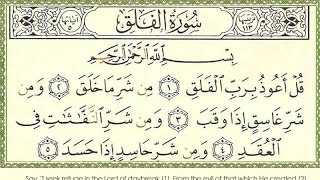 سُورَةُ الْفَلَقِ
بِسْمِ اللَّهِ الرَّحْمَٰنِ الرَّحِيمِ
قُلْ أَعُوذُ بِرَبِّ الْفَلَقِ ١ مِن شَرِّ مَا خَلَقَ ٢ وَمِن
شَرِّ غَاسِقٍ إِذَا وَقَبَ ٣ وَمِن شَرِّ النَّفَّاثَاتِ فِي
الْعُقَدِ ٤ وَمِن شَرِّ حَاسِدٍ إِذَا حَسَدَ ٥
Say, "I seek refuge in the Lord of daybreak (1). From the evil of that which He created (2)